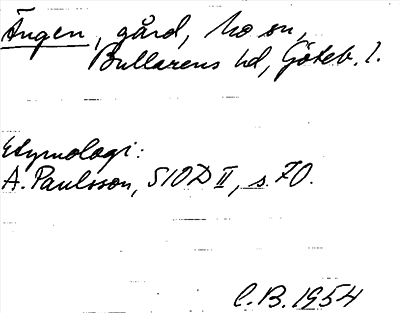 Ängen, gård, Mo sn,
Bullarens hd, Göteb. l.
Etymologi:
A. Paulsson, SIOD II, s. 70.
C.B. 1954